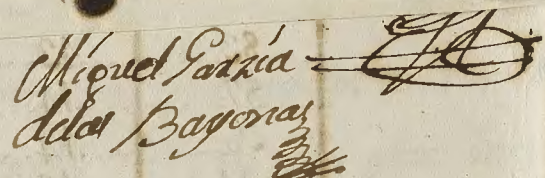 Miguel Garzia
delas Bayonas